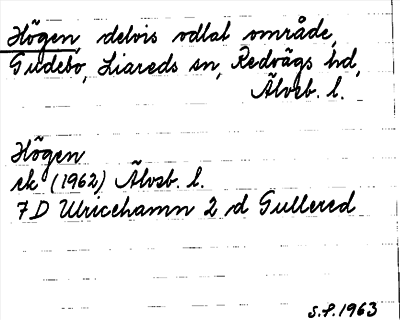 Högen, delvis odlat område,
Gudebo, Liareds sn, Redvägs hd,
Älvsb. l.
Högen
ek (1962) Älvsb. l.
7D Ulricehamn 2 d Gullered
S.P. 1963